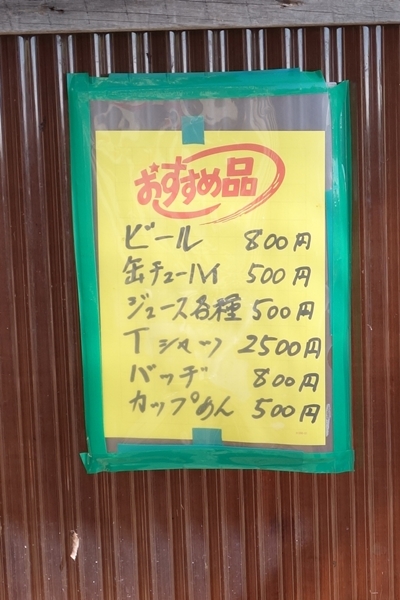 おすすめ品
ビール 800円
缶チューハイ 500円
ジュース各種 500円
Tシャツ 2500円
バッヂ 800円
カップめん 500円